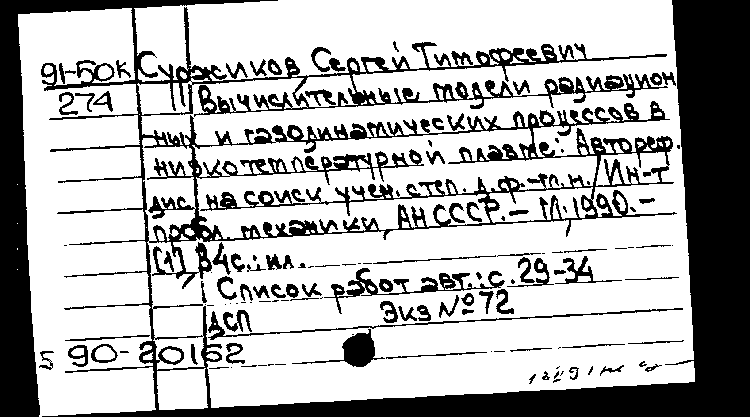 91-50к Суржиков, Сергей Тимофеевич
274 Вычислительные модели радиацион
ных и газодинамических процессов в
низкотемпературной плазме: Автореф.
дис. на соиск. учен. степ. д.ф.-м.н. / Ин-т
пробл. механики, АН СССР. - М., 1990. -
[1], 34 с.: ил.
Список работ авт.: с. 29-34
ДСП Экз № 72
5 90-20162